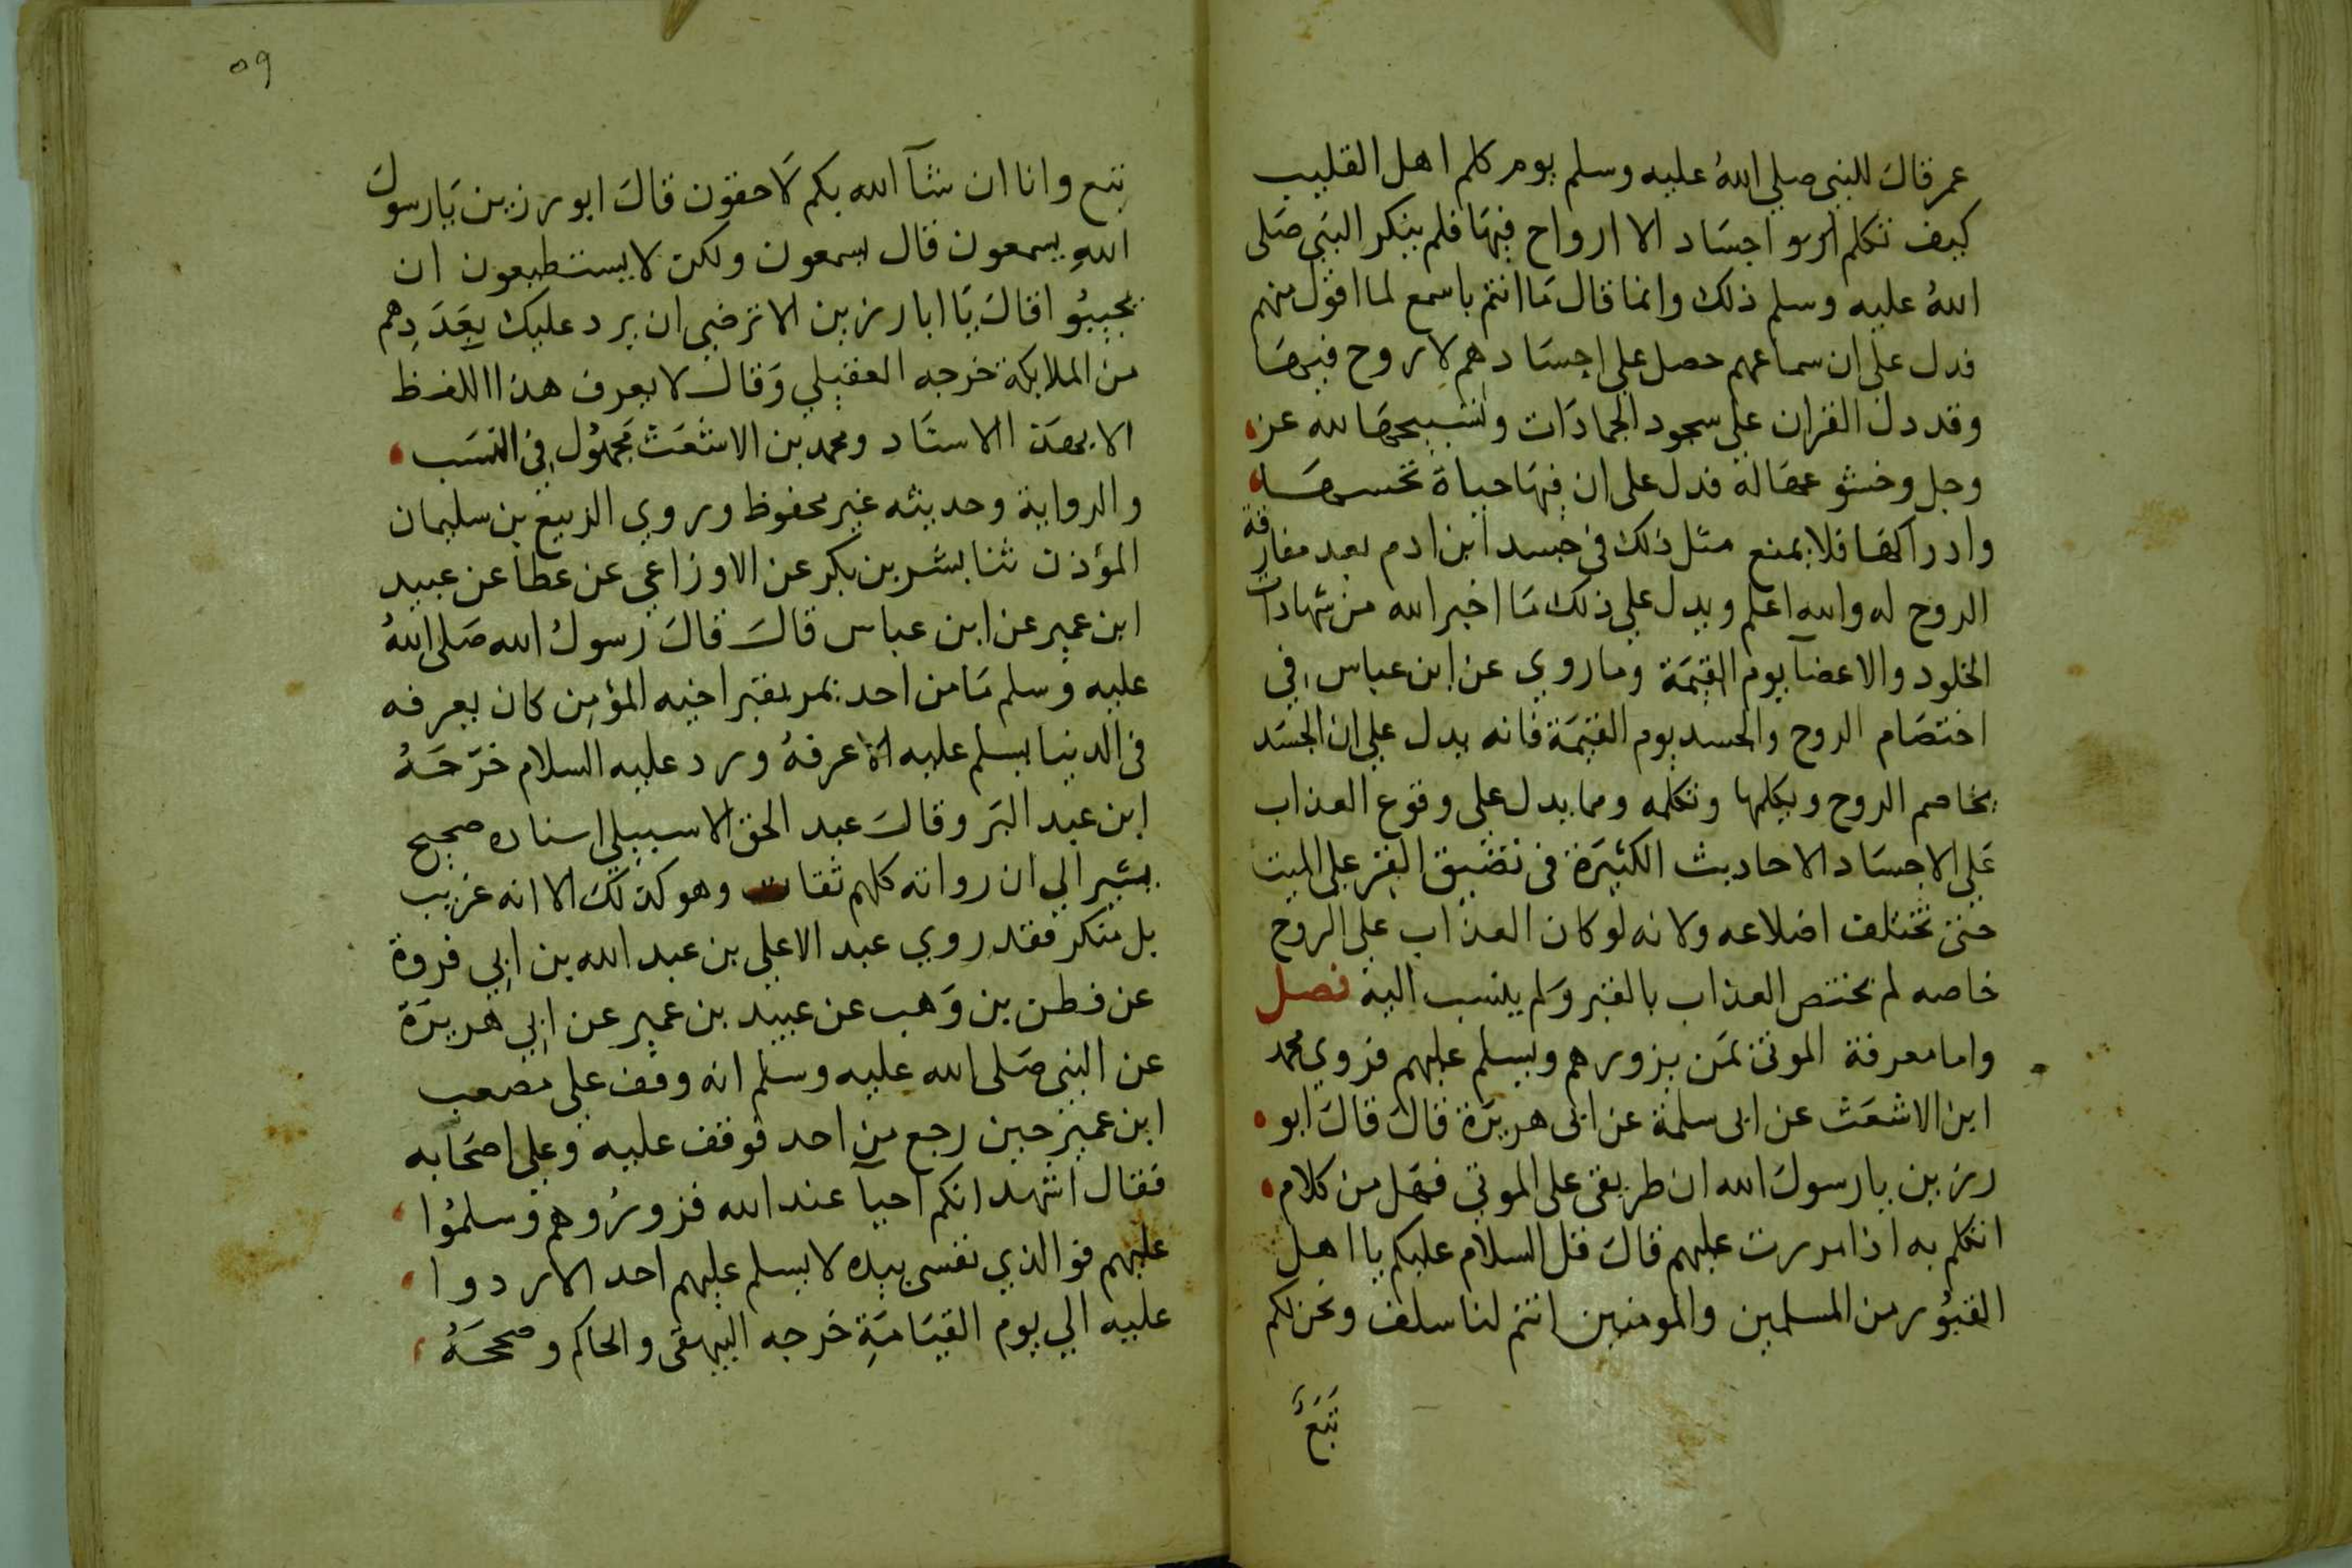 عمر قال للنبى صلي اللهُ عليه وسلم يوم كلم اهل القليب
كيف تكلم اجسَاد الا ارواح فيهَا فلم ينكر النبَى صَلى
اللهُ عليه وسلم ذلك وانما قال مَا انتم باسمع لما اقول منهم
فدل على ان سماعهم حصل علي اجسَادهم لا روح فيهَا
وقد دل القران علي سجود الجمادَات وتسبيحهَا لله عز
وجل وخشو عهَا له فدل على ان فيهَا حياة تحسهَا
وادراكها فلا يمنع مثل ذلك فى جسد ابن ادم بعد مفارقة
الروح له والله اعلم ويدل علي ذلك مَا اخبر الله من شهادات
الجلود والاعضآ يوم القيمَة وما روي عن ابن عباس في
اختصَام الروح والجسد يوم القيمَة فانه يدل علي ان الجسَد
يخاصم الروح ويكلمها وتكلمه ومما يدل على وقوع العذاب
عَلي الاجسَاد الاحاديث الكثيرَة فى تضييق القبر علي الميت
حتى تختلف اضلاعه ولانه لو كان العذاب على الروح
خاصه لم يختص العذاب بالقبر وَلم ينسب اليه فصل
واما معرفة الموتى بمَن يزورهم ويسلم عليهم فروي محمد
ابن الاشعَث عن ابى سلمة عن ابى هريرَة قال قالَ ابو
رزين يارسولَ الله ان طريقى على الموتي فهَل من كلام
اتكلم به اذا مررت عليهم قالَ قل السلام عليكم يا اهل
القبوُر من المسلمين والمومنين انتم لنا سلف ونحن لكم
تَبَعٌ
٥٩
تبع وانا ان شآ الله بكم لَاحقون قالَ ابورزين يَارسولَ
اللهِ يسمعون قال يسمعون ولكن لا يستطيعون ان
يجيبوُا قالَ يَا ابا رزين الا ترضي ان يرد عليك بعَدَدِهم
من الملايكة خرجه العقيلي وَقال لا يعرف هذا اللفظ
الا بهذَا الاسنَاد ومحمد بن الاشعَث مَجهوُل في النسَب
والرواية وحديثه غير محفوظ وروي الربيع بن سليمان
المؤذن ثنا بشر بن بكر عن الاوزاعي عن عطا عن عبيد
ابن عمير عن ابن عباس قالَ قالَ رسولُ الله صَلى اللهُ
عليه وسلم مَا من احد يمر بقبر اخيه المؤمن كان يعرفه
فى الدنيا يسلم عليه الا عرفهُ ورد عليه السلام خرّجَهُ
ابن عبد البَر وقالَ عبد الحق الاسبيلي اسناده صحيح
يشير الي ان رواته كلهم ثقات وهو كذلكَ الا انه غريب
بل منكر فقد روي عبد الاعلي بن عبد الله بن ابي فروة
عن قطن بن وَهب عن عبيد بن عمير عن ابي هريرَة
عن النبى صَلى الله عليه وسلم انه وقف علي مصعب
ابن عمير حين رجع من احد فوقف عليه وعلي اصحَابه
فقال اشهد انكم احيآ عند الله فزورُوهم وسلموُا
عليهم فوالذي نفسى بيده لا يسلم عليهم احد الا ردوا
عليه الي يوم القيَامَةِ خرجه البيهقى والحاكم وصححَهُ